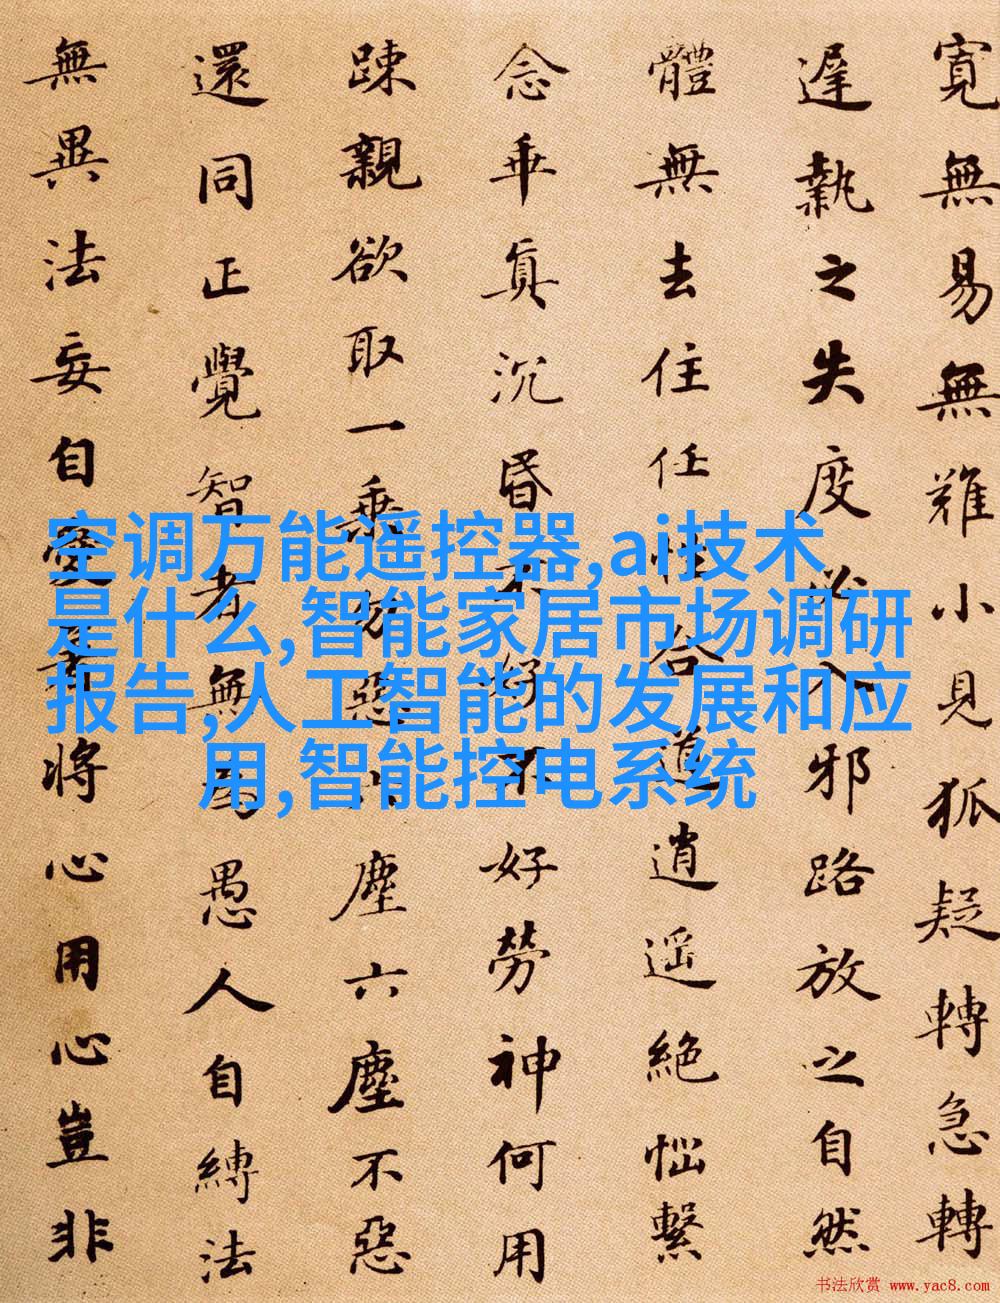 寬無易無難小見狐疑轉急轉
遲執之失度必入邪路放之自然
體無去住任性合道逍遥絕惱繫
念乖真沉昏不好不好勞神何用
踈親欲取一乘勿惡六塵六塵不惡
還同正覺智者無為愚人自縛法
無異法妄自愛著將心用心豈非
空调万能遥控器,ai技术
是什么,智能家居市场调研
报告,人工智能的发展和应
用,智能控电系统
书法欣赏 www.yac8.com